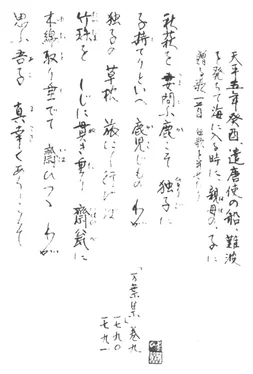 天平五年癸酉 遣唐使の船、難波
を発ちて海に入る時に、親母の、子に
贈る歌一首
秋萩を 妻問ふ鹿こそ 独子に
子持てりといへ 鹿児じもの わが
独子の 草枕 旅にし行けば
竹珠を しじに貫き垂り 齋瓮に
木綿取り垂でて 齋ひつつ わが
思ふ吾子 真幸くありこそ
万葉集 巻九
一七九〇
一七九一